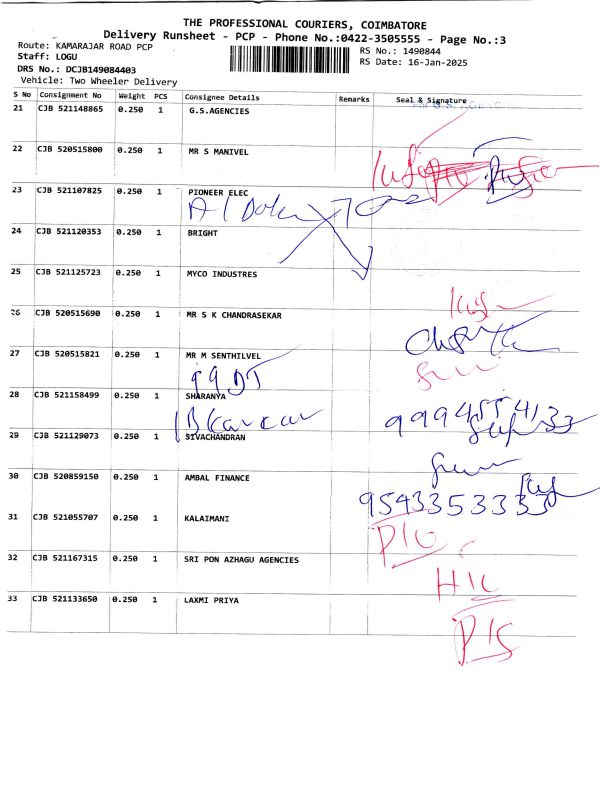 THE PROFESSIONAL COURIERS, COIMBATORE
Delivery Runsheet - PCP - Phone No.:0422-3505555 - Page No.:3
Route: KAMARAJAR ROAD PCP
RS No.: 1490844
Staff: LOGU
RS Date: 16-Jan-2025
DRS No.: DCJB149084403
Vehicle: Two Wheeler Delivery
S No Consignment No Weight PCS Consignee Details Remarks Seal & Signature
21 CJB 521148865 0.250 1 G.S.AGENCIES
22 CJB 520515800 0.250 1 MR S MANIVEL
23 CJB 521107825 0.250 1 PIONEER ELEC
24 CJB 521120353 0.250 1 BRIGHT
25 CJB 521125723 0.250 1 MYCO INDUSTRES
26 CJB 520515690 0.250 1 MR S K CHANDRASEKAR
27 CJB 520515821 0.250 1 MR M SENTHILVEL
99 DT
28 CJB 521158499 0.250 1 SHARANYA
29 CJB 521129073 0.250 1 SIVACHANDRAN
30 CJB 520859150 0.250 1 AMBAL FINANCE
9543353333
31 CJB 521055707 0.250 1 KALAIMANI
32 CJB 521167315 0.250 1 SRI PON AZHAGU AGENCIES
33 CJB 521133650 0.250 1 LAXMI PRIYA